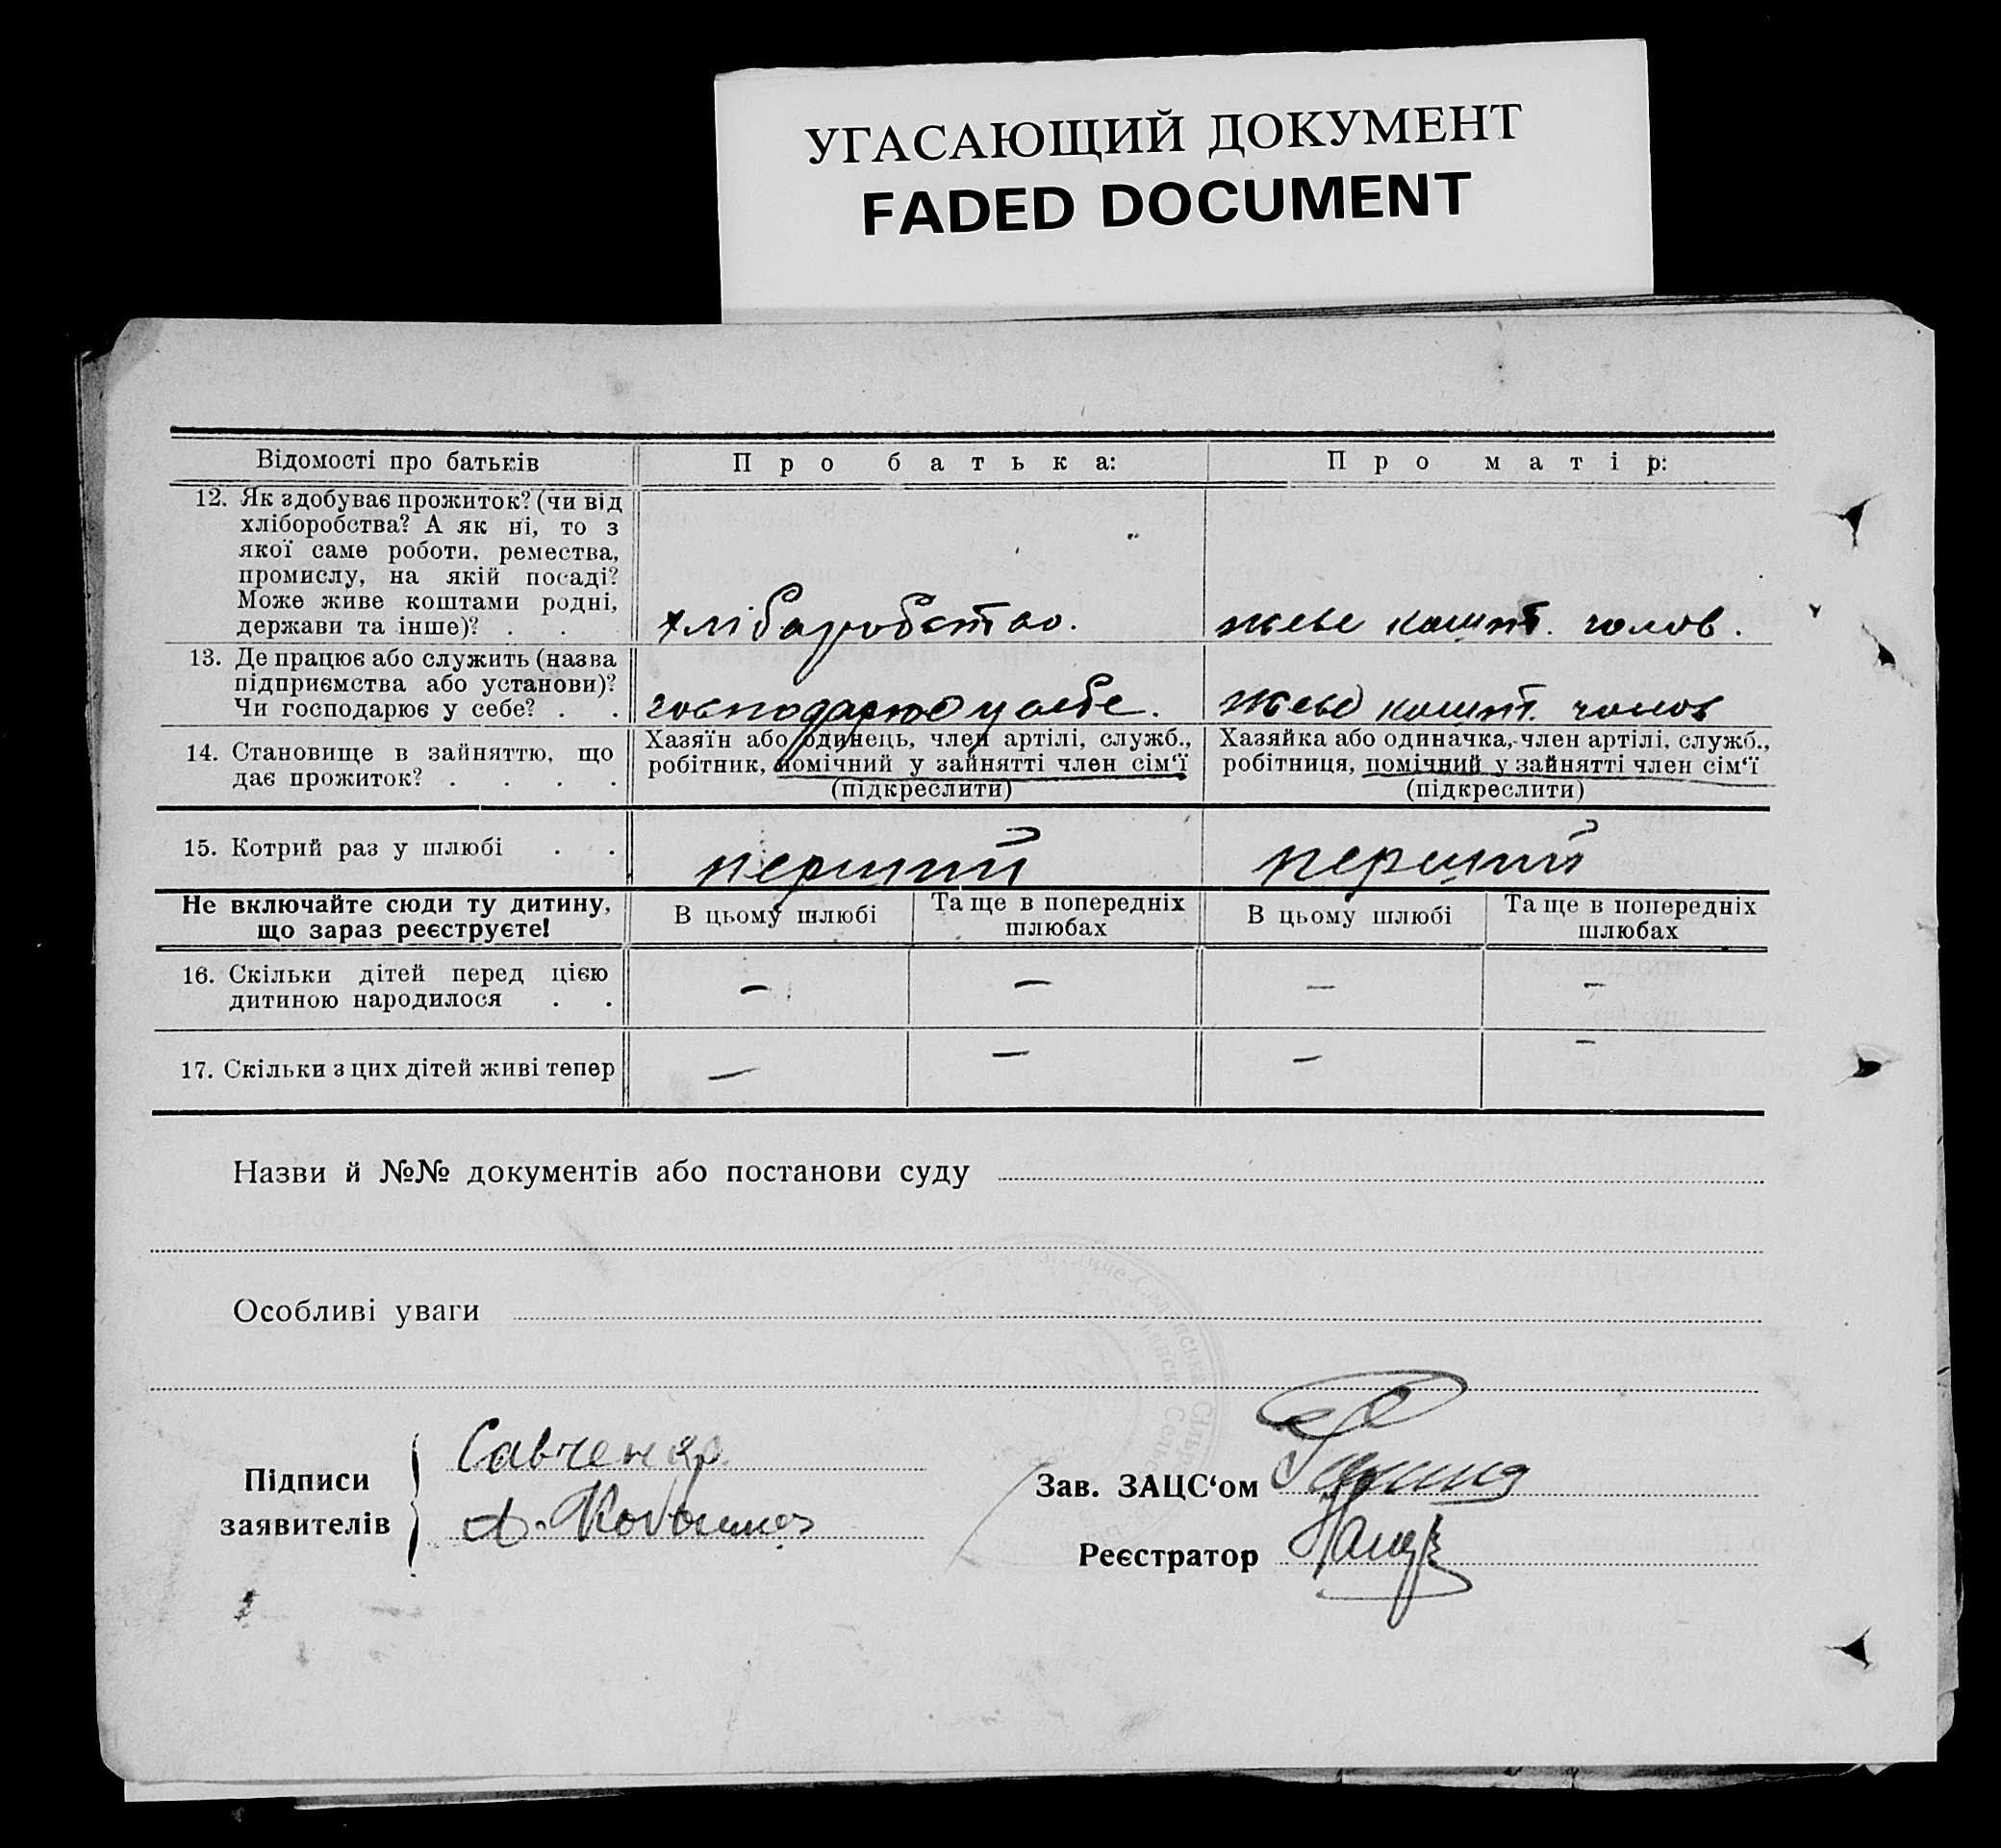 УГАСАЮЩИЙ ДОКУМЕНТ
FADED DOCUMENT
Відомості про батьків
Про батька:
Про матір:
12. Як здобуває прожиток? (чи від
хліборобства? А як ні, то з
якої саме роботи, ремества,
промислу, на якій посаді?
Може живе коштами родні,
держави та інше)? . .
хліборобство.
живе кошт. чолов.
13. Де працює або служить (назва
підприємства або установи)?
Чи господарює у себе? . .
господарює у себе.
живе кошт. чолов
14. Становище в зайняттю, що
дає прожиток? . . . .
Хазяїн або одинець, член артілі, служб.,
робітник, помічний у зайнятті член сім‘ї
(підкреслити)
Хазяйка або одиначка, член артілі, служб.,
робітниця, помічний у зайнятті член сім‘ї
(підкреслити)
15. Котрий раз у шлюбі . .
перший
перший
Не включайте сюди ту дитину,
що зараз реєструєте!
В цьому шлюбі
Та ще в попередніх
шлюбах
В цьому шлюбі
Та ще в попередніх
шлюбах
16. Скільки дітей перед цією
дитиною народилося . .
– – – –
17. Скільки з цих дітей живі тепер
– – – –
Назви й №№ документів або постанови суду
Особливі уваги
Підписи
заявителів
Савченко
Зав. ЗАЦС‘ом
Реєстратор